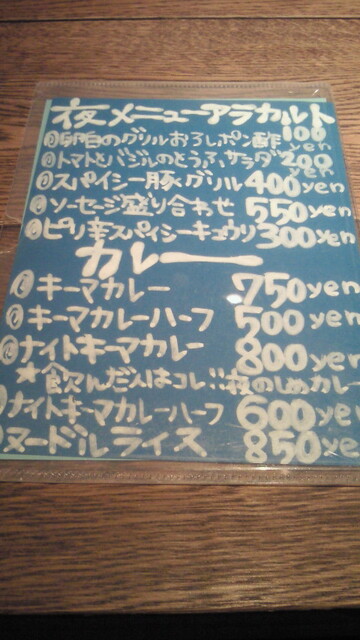 夜メニューアラカルト
のグリルおろしポン酢 100 yen
トマトとバジルのとうふサラダ 200 yen
スパイシー豚グリル 400 yen
ソーセージ盛り合わせ 550 yen
ピリ辛スパイシーキュウリ 300 yen
カレー
キーマカレー 750 yen
キーマカレーハーフ 500 yen
ナイトキーマカレー 800 yen
★飲んだ人はコレ!!夜のしめカレー
ナイトキーマカレーハーフ 600 ye
ヌードルライス 850 ye